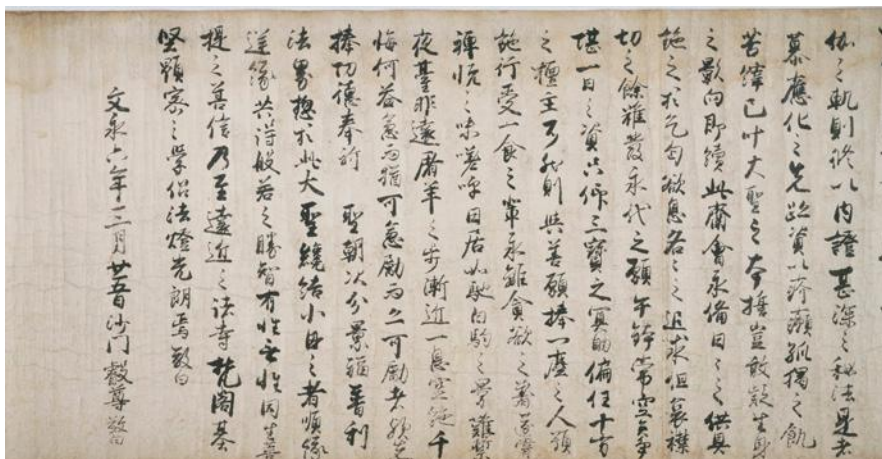 伽之軌則終以内證甚深之秘法是者
慕應化之先蹤資以疥癩孤獨之飢
苦偉已叶大聖之本捶豈敢疑生身
之影向即續此齋會永備日々之供具
施之於乞匈欲息各々之追求但衰襟
切之餘雖發永代之願午鉢常空
堪一日之資只仰三寶之冥助偏任十方
之檀主乃則與善願捧一塵之人
施行受一食之輩永離貪欲之
禅悦之味嗟呼日居如馳白駒之景難
夜臺非遠屠羊之歩漸近一息空施千
悔何益急而猶可急勵而公可勵者
捧功德奉祈 聖朝次分景福普利
法界惣於此大聖纔結小因之者順縁
逆縁共得般若之勝智有性無性同生菩
提之善信乃至遠近之法寺梵閣基
堅顕密之学侶法燈光朗焉敬白
文永六年三月廿五日沙門叡尊敬白